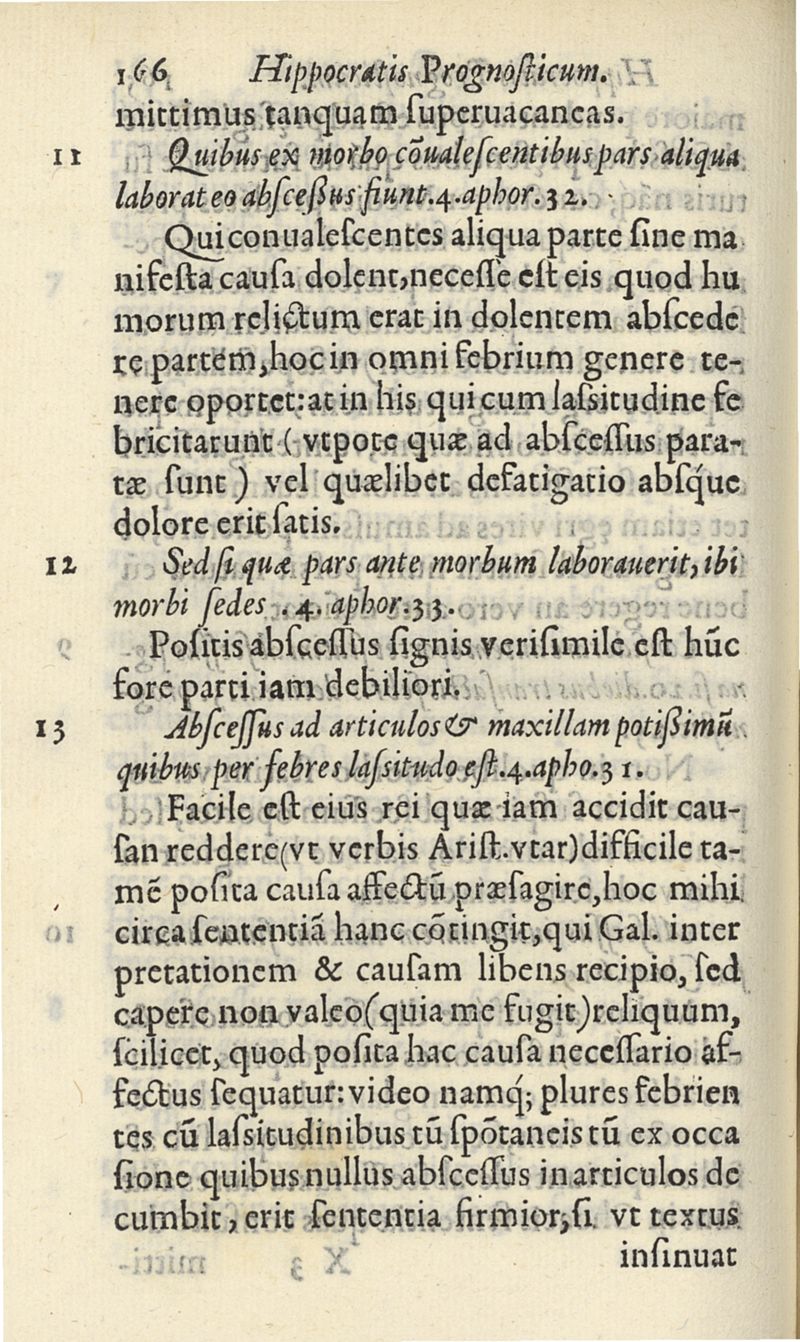 166 Hippocratis Prognoſticum.
mittimus tanquam ſuperuacaneas.
11 Quibus ex morbo cõualeſcentibus pars aliqua
laborat eo abſceſſus fiunt.4.aphor.32.
Qui conualeſcentes aliqua parte ſine ma
nifeſta cauſa dolent,neceſſe eſt eis quod hu
morum relictum erat in dolentem abſcede
re partem,hoc in omni febrium genere te-
nere oportet:at in his qui cum laſsitudine fe
bricitarunt (vtpote quæ ad abſceſſus para-
tæ ſunt) vel quælibet defatigatio abſque
dolore erit ſatis.
12 Sed ſi quæ pars ante morbum laborauerit, ibi
morbi ſedes .4. aphor.33.
Poſitis abſceſſus ſignis veriſimile eſt hũc
fore parti iam debiliori.
13 Abſceſſus ad articulos & maxillam potiſsimũ
quibus per febres laſsitudo eſt.4.apho.31.
Facile eſt eius rei quæ iam accidit cau-
ſan reddere(vt verbis Ariſt.vtar)difficile ta-
mẽ poſita cauſa affectũ præſagire,hoc mihi
circa ſententiã hanc cõtingit,qui Gal. inter
pretationem & cauſam libens recipio, ſed
capere non valeo(quia me fugit)reliquum,
ſcilicet, quod poſita hac cauſa neceſſario af-
fectus ſequatur:video namq́; plures febrien
tes cũ laſsitudinibus tũ ſpõtaneis tũ ex occa
ſione quibus nullus abſceſſus in articulos de
cumbit, erit ſententia firmior,ſi vt textus
inſinuat